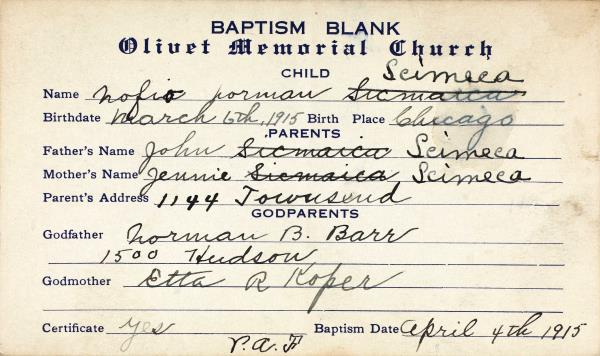 BAPTISM BLANK
Olivet Memorial Church
CHILD
Scimeca
Name Nofio Jorman Sicmaica
Birthdate March 6th, 1915 Birth Place Chicago
PARENTS
Father's Name John Sicmaica Scimeca
Mother's Name Jennie Sicmaica Scimeca
Parent's Address 1144 Townsend
GODPARENTS
Godfather Norman B. Barr
1500 Hudson
Godmother Etta R Koper
Certificate yes Baptism Date April 4th 1915
P.A.F